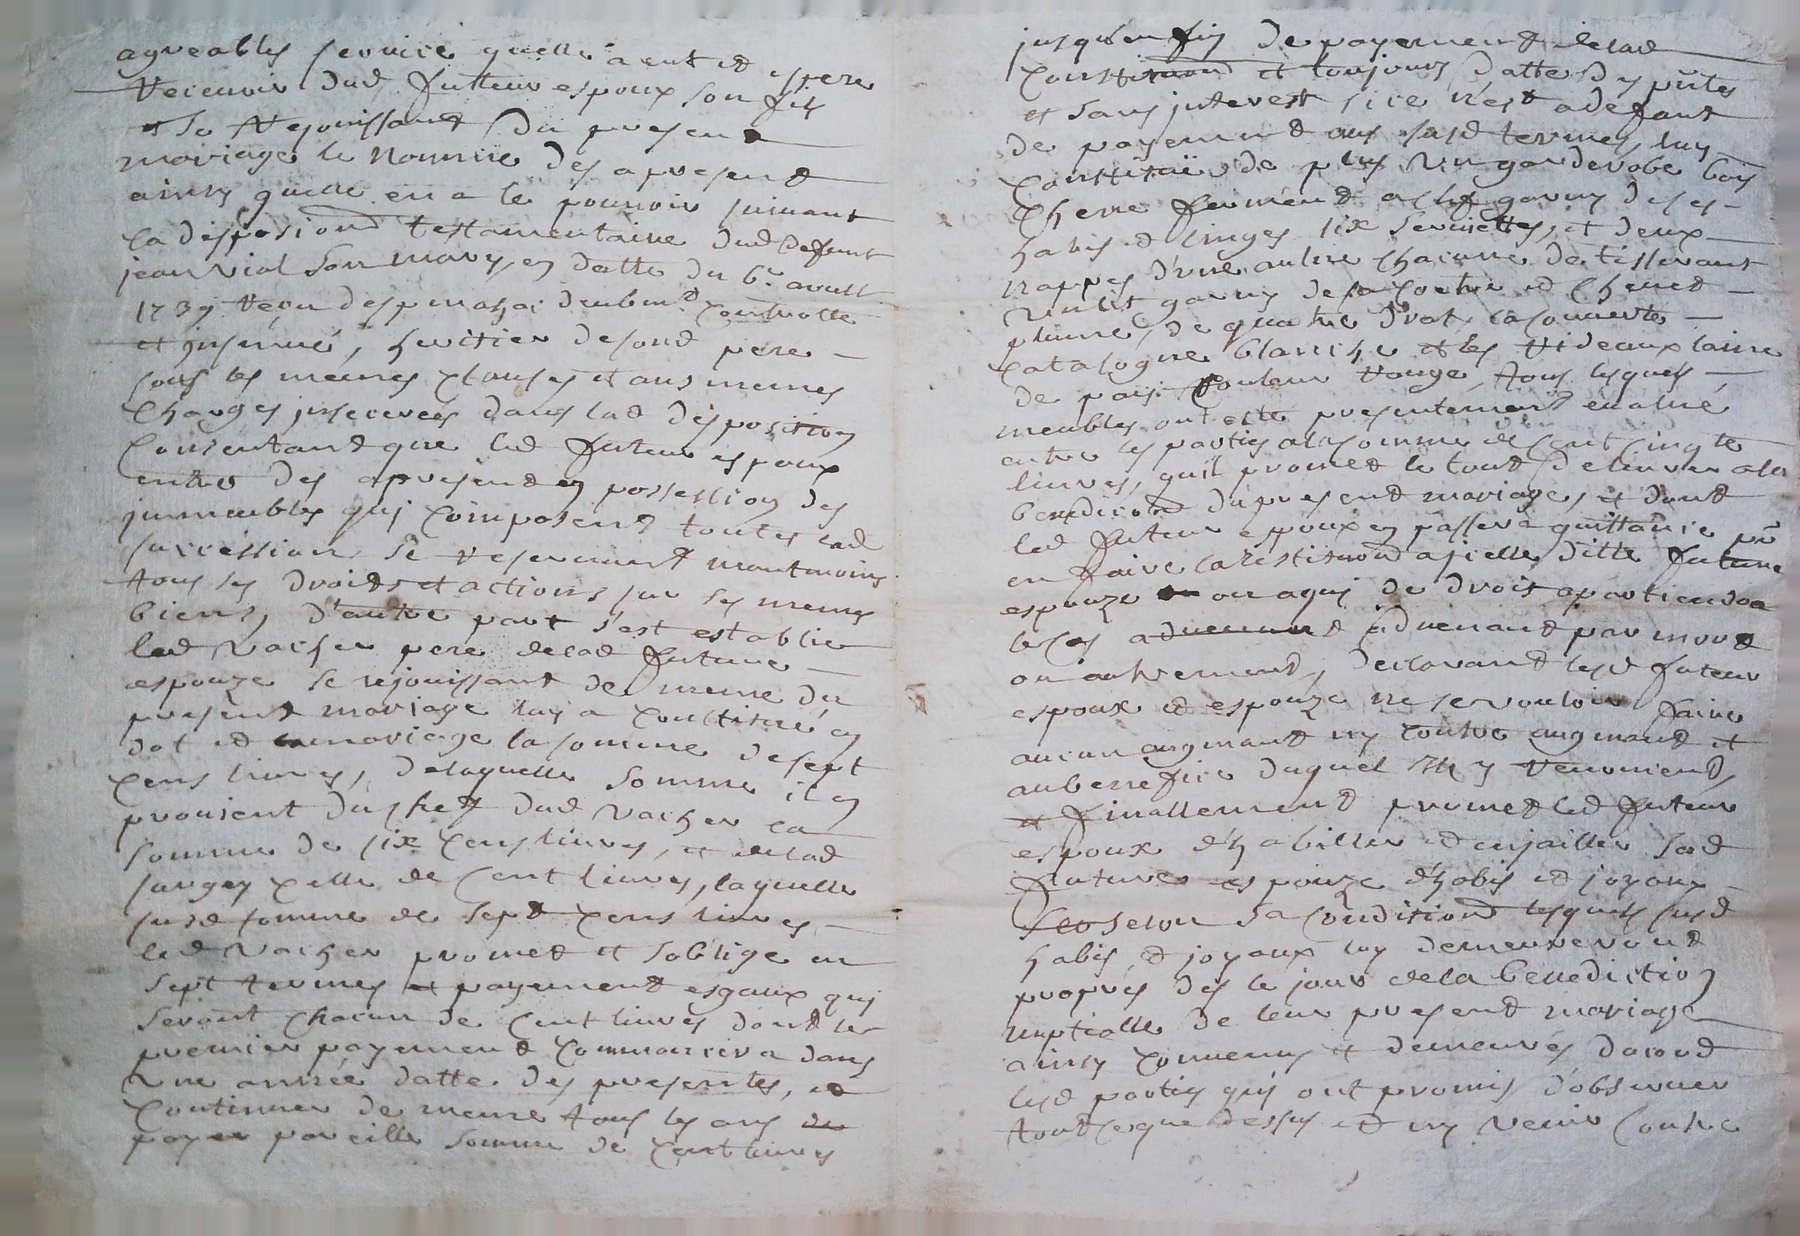 agreables service quelle a eut et espere
recevoir dud futteur espoux son fils
et se rejouissant du present
mariage le nomme des apresent
ainsy quelle en a le pouvoir suivant
la disposiond testamentaire dud deffunt
jean vial son mary, en datte du 6e avril
1739 receu des controlle
et insinué, heritier desond pere
sous les meines clauses et aus meines
charges inscerees dans lad disposition
consentand que led futeur espoux
entre des apresend en possession des
immeubles quj composent toutes lad
succession se reservant neantmoins
tous ses droids et actions sur ses meines
biens, d'autre part s'est establie
led vacher pere delad future
espouze se rejouissant de meine du
present mariage luy a constitué en
dot et mariage la somme de sept
cens livres, delaquelle somme il en
provient du chefz dud vacher la
somme de six cens livres, et delad
jangey celle de cent livres, laquelle
susd somme de sept cens livres
led vacher promet et soblige en
sept termes et payement esgaux quj
seront chacun de cent livres dont le
premier payement commancera dans
une année datte des presentes, et
continuer de meine tous les ans de
payer pareille somme de cent livres
jusqu'en fin de payement delad
constituond et toujours datte des pntes
et sans interest si ce n'est adefaut
de payement aus susd termes, luy
constitue de plus un garderobe bois
cherre fermént a clef garny de ses
habis et linges six serviettes, et deux
nappes d'une aulne chacune de tisserant
un lit garny de sa coetre et chevet
plume, de quatre drat la couverte
catalogne blanche et les rideaux laine
de pais couleur rouge, tous lesquels
meubles ont esté presentement evalué
entre les parties ala somme de cent cinqte
livres, quil promet le tout delivrer ala
benediciond du present mariage, et dont
led futeur espoux en passera quittance pr
en faire la restituond a jcelle ditte future
espouze ou a quj de droit apartiendra
le cas advenant advenant par mort
ou autrement, declarant lesd futeur
espoux et espouze ne se vouloir faire
aucun augmant ny contre augmant et
au benefice duquel ils y renoncent,
et finallement promet led futeur
espoux d'habiller et enjailler sad
future espouze d'habis et joyaux
selon sa condisiond lesquels susd
habis, et joyaux luy demeureront
propres des le jour dela benediction
nuptialle de leur present mariage
ainsy convenus et demeurés dacord
lesd parties quj ont promis d'observer
tout ce que dessus et ny venir contre